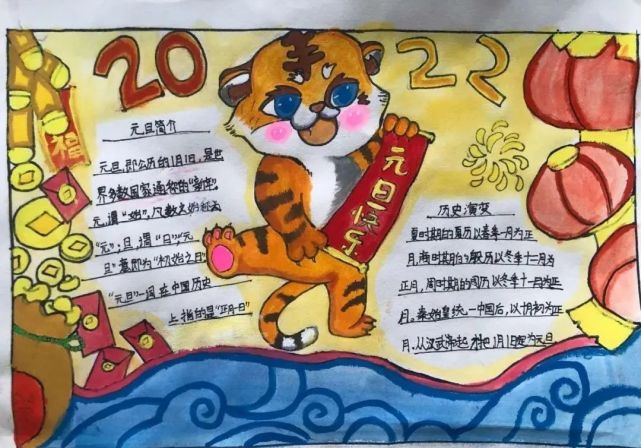 2022
福
元旦快乐
元旦简介
元旦,即公历的1月1日,是世
界多数国家通称的“新年”
元,谓“始”,凡数之始称为
“元”;旦,谓“日”;“元
旦”意即为“初始之日”
“元旦”一词在中国历史
上指的是“正月一日”
历史演变
夏时期的夏历以春季一月为正
月,商时期的殷历以冬季十二月为
正月,周时期的周历以冬季十一月为正
月。秦始皇统一中国后,以十月初为正
月,从汉武帝起
1月1日定为元旦